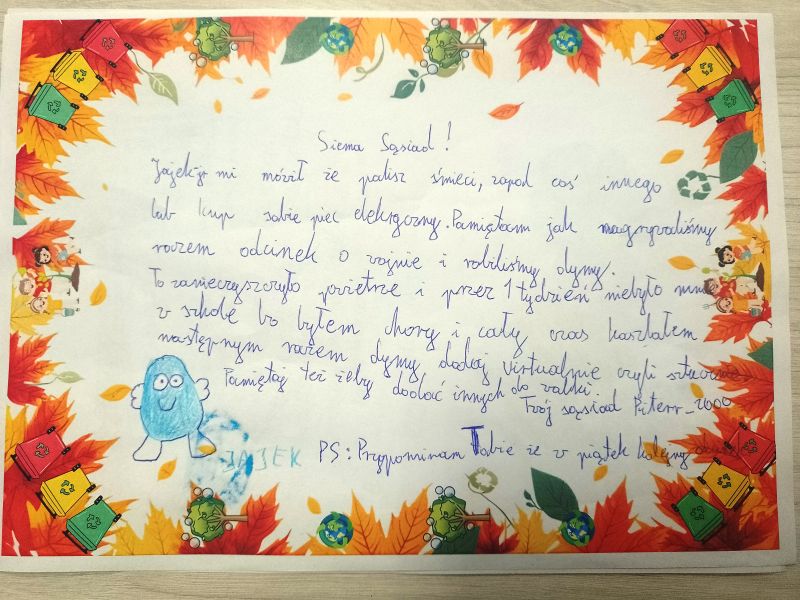 Siema Sąsiad!
Jajek jr mi mówił że palisz śmieci, zapal coś innego
lub kup sobie piec elektryczny. Pamiętam jak nagrywaliśmy
razem odcinek o wojnie i robiliśmy dymy.
To zanieczyszczyło powietrze i przez 1 tydzień niebyło mnie
w szkole bo byłem chory i cały czas kaszlałem
następnym razem dymy dodaj virtualnie czyli sztucznie
Pamiętaj też żeby dodać innych do walki.
Twój sąsiad Piterr_2000
JAJEK PS: Przypominam Tobie że w piątek kolejny